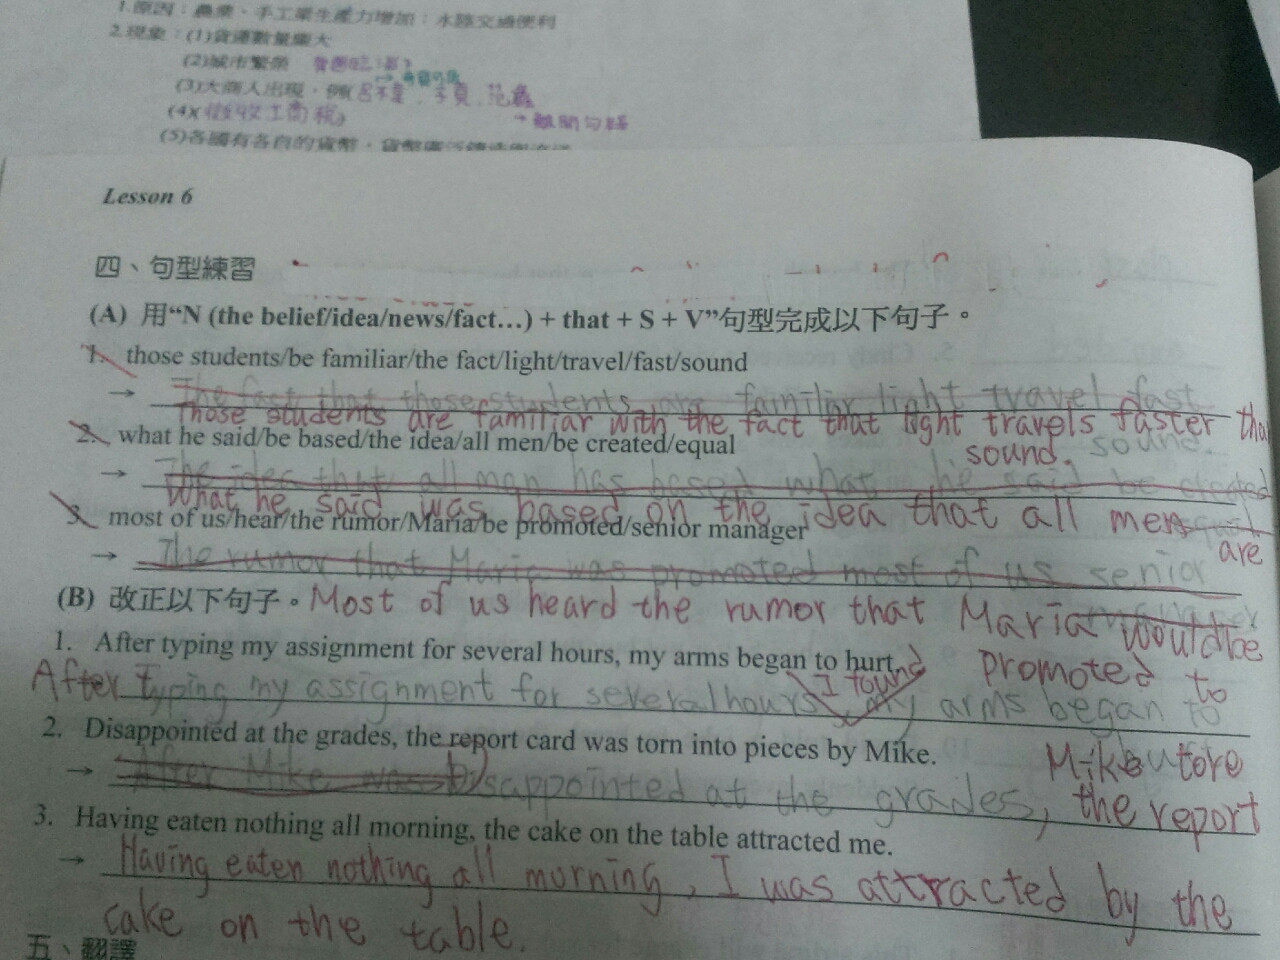 1.原因：農業、手工業生產力增加；水陸交通便利
2.現象：(1)貨運數量龐大
(2)城市繁榮
(3)大商人出現，例(呂不韋、子貢、范蠡
(4)(徵收工商稅)
(5)各國有各自的貨幣，貨幣
Lesson 6
四、句型練習
(A) 用“N (the belief/idea/news/fact…) + that + S + V”句型完成以下句子。
1. those students/be familiar/the fact/light/travel/fast/sound
→ The fact that those students are familiar light travel fast
Those students are familiar with the fact that light travels faster than
2. what he said/be based/the idea/all men/be created/equal
sound. sound.
→ The idea that all man has based what he said be created
What he said was based on the idea that all men
3. most of us/hear/the rumor/Maria/be promoted/senior manager
are
→ The rumor that Maria was promoted most of us senior
(B) 改正以下句子。Most of us heard the rumor that Maria would be
1. After typing my assignment for several hours, my arms began to hurt.
promoted to
After typing my assignment for several hours, I found my arms began to
2. Disappointed at the grades, the report card was torn into pieces by Mike.
Mike tore
→ After Mike was Disappointed at the grades, the report
3. Having eaten nothing all morning, the cake on the table attracted me.
→ Having eaten nothing all morning, I was attracted by the
cake on the table.
五、翻譯